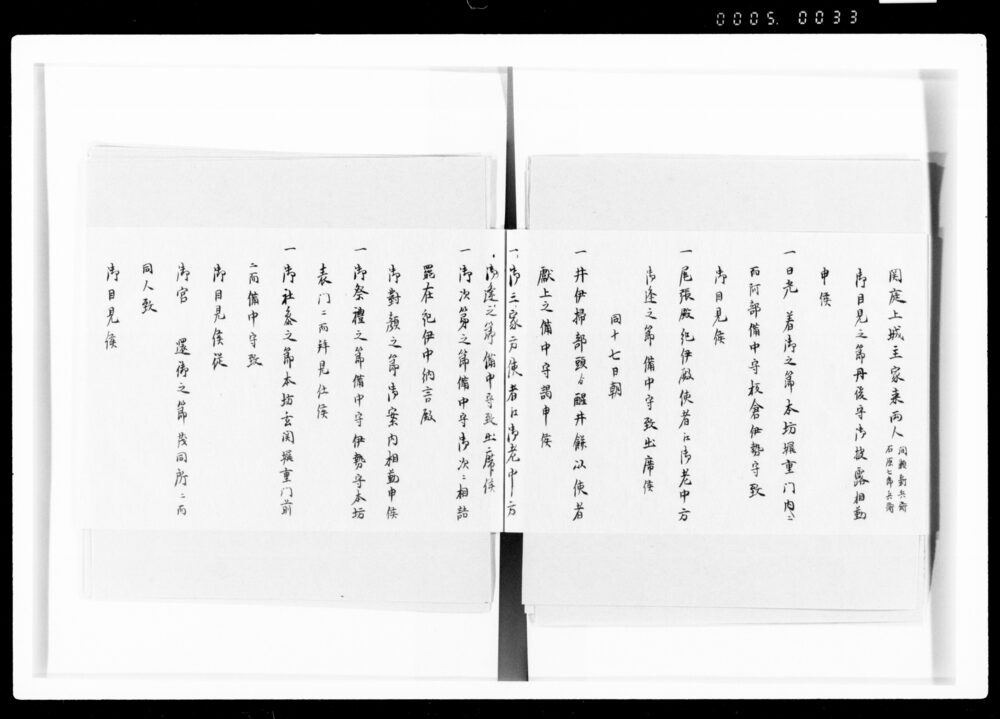 0005. 0033
関庭上城主家来両人
間瀬新兵衛
石原七郎兵衛
御目見之節丹後守御披露相勤
申候
一日光 着御之節本坊塀重門内ニ
而阿部備中守板倉伊勢守致
御目見候
一尾張殿紀伊殿使者江御老中方
御逢之節備中守致出席候
同十七日朝
一井伊掃部頭ゟ醒井餅以使者
獻上之備中守謁申候
一御三家方使者江御老中方
御逢之節備中守致出席候
一御次第之節備中守御次ニ相詰
罷在紀伊中納言殿
御對顔之節御案内相勤申候
一御祭禮之節備中守伊勢守本坊
表門ニ而拜見仕候
一御社參之節本坊玄関塀重門前
ニ而備中守致
御目見候從
御宮 還御之節茂同所ニ而
同人致
御目見候